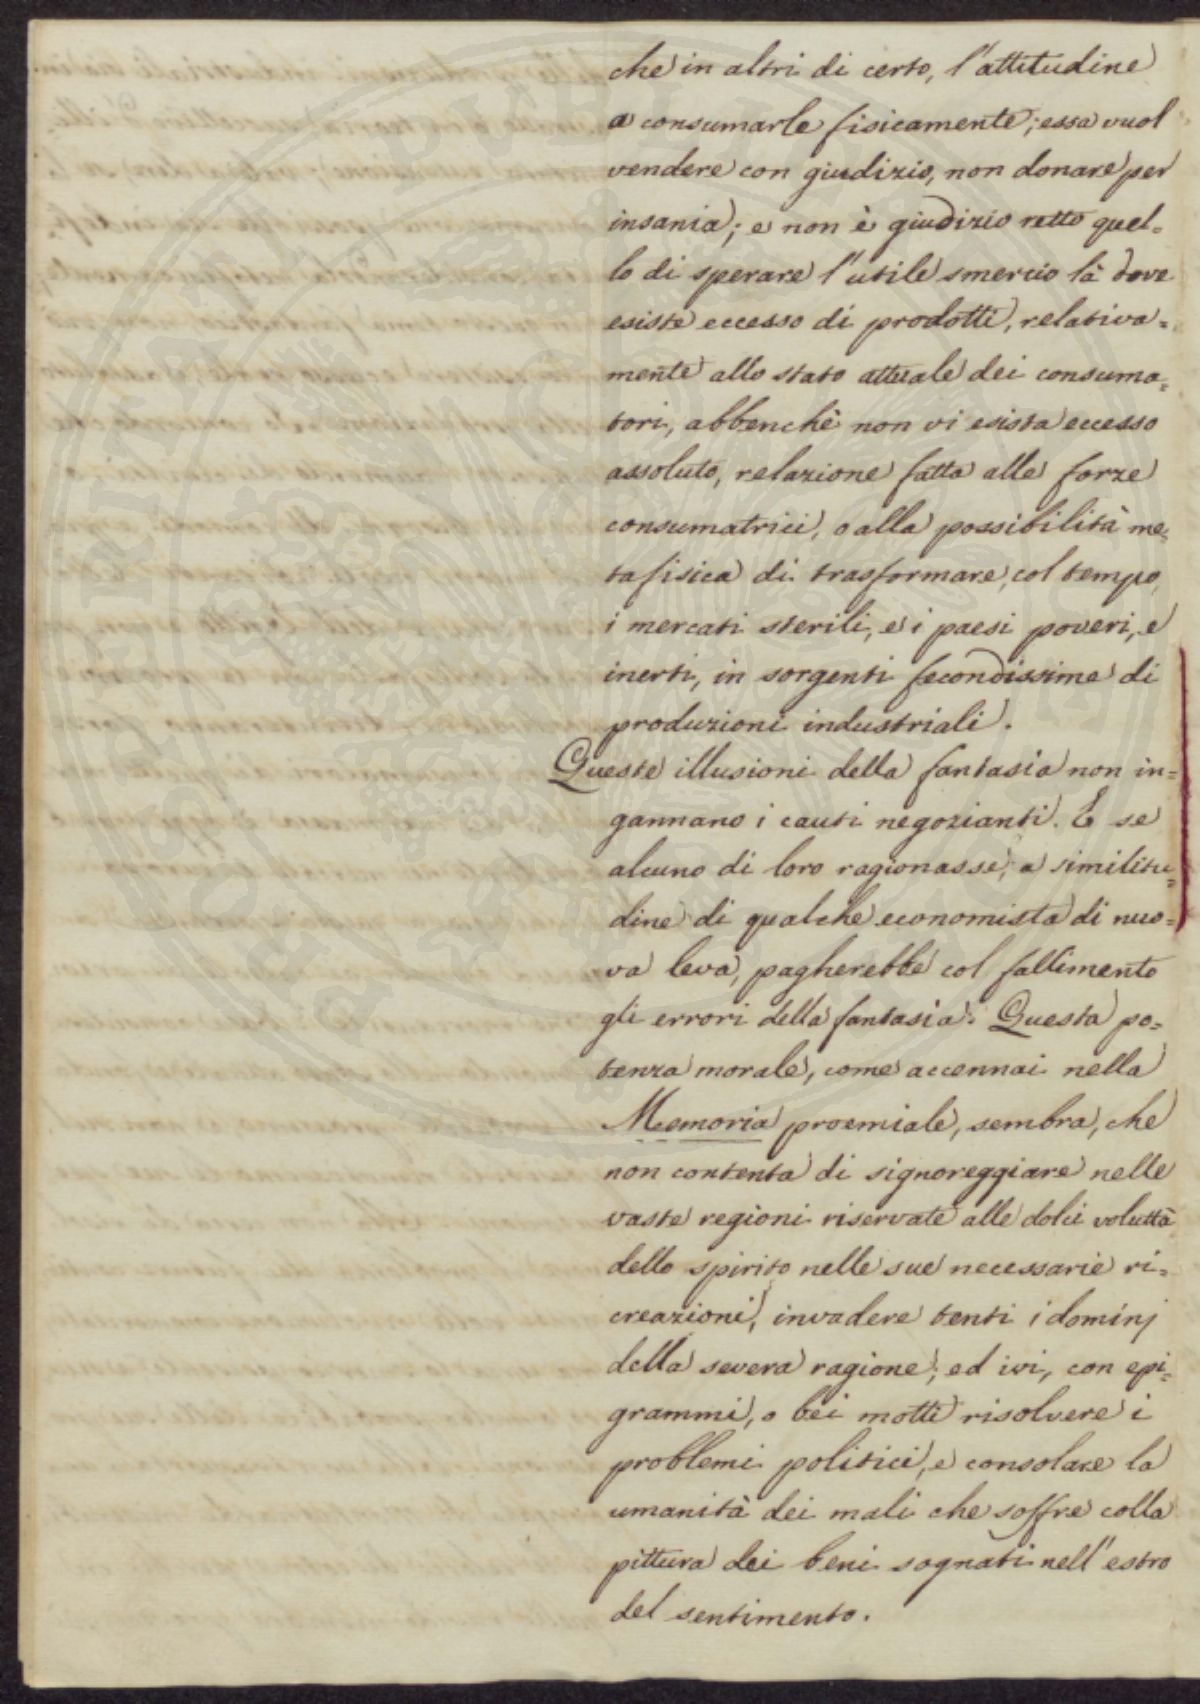 che in altri di certo, l'attitudine
a consumarle fisicamente; essa vuol
vendere con giudizio, non donare per
insania; e non è giudizio retto quel=
lo di sperare l'utile smercio là dove
esiste eccesso di prodotti, relativa=
mente allo stato attuale dei consuma=
tori, abbenchè non vi esista eccesso
assoluto, relazione fatta alle forze
consumatrici, o alla possibilità me=
tafisica di trasformare, col tempo,
i mercati sterili, e i paesi poveri, e
inerti, in sorgenti fecondissime di
produzioni industriali.
Queste illusioni della fantasia non in=
gannano i cauti negozianti. E se
alcuno di loro ragionasse, a similitu=
dine di qualche economista di nuo=
va leva, pagherebbe col fallimento
gli errori della fantasia. Questa po=
tenza morale, come accennai nella
Memoria proemiale, sembra, che
non contenta di signoreggiare nelle
vaste regioni riservate alle dolci voluttà
dello spirito nelle sue necessarie ri=
creazioni, invadere tenti i dominj
della severa ragione; ed ivi, con epi=
grammi, o bei motti risolvere i
problemi politici, e consolare la
umanità dei mali che soffre colla
pittura dei beni sognati nell'estro
del sentimento.